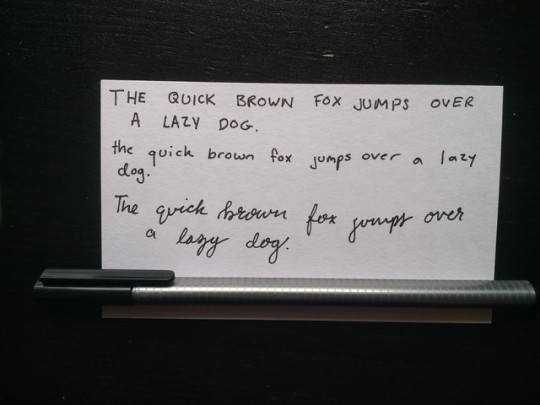 THE QUICK BROWN FOX JUMPS OVER
A LAZY DOG.
the quick brown fox jumps over a lazy
dog.
The quick brown fox jumps over
a lazy dog.